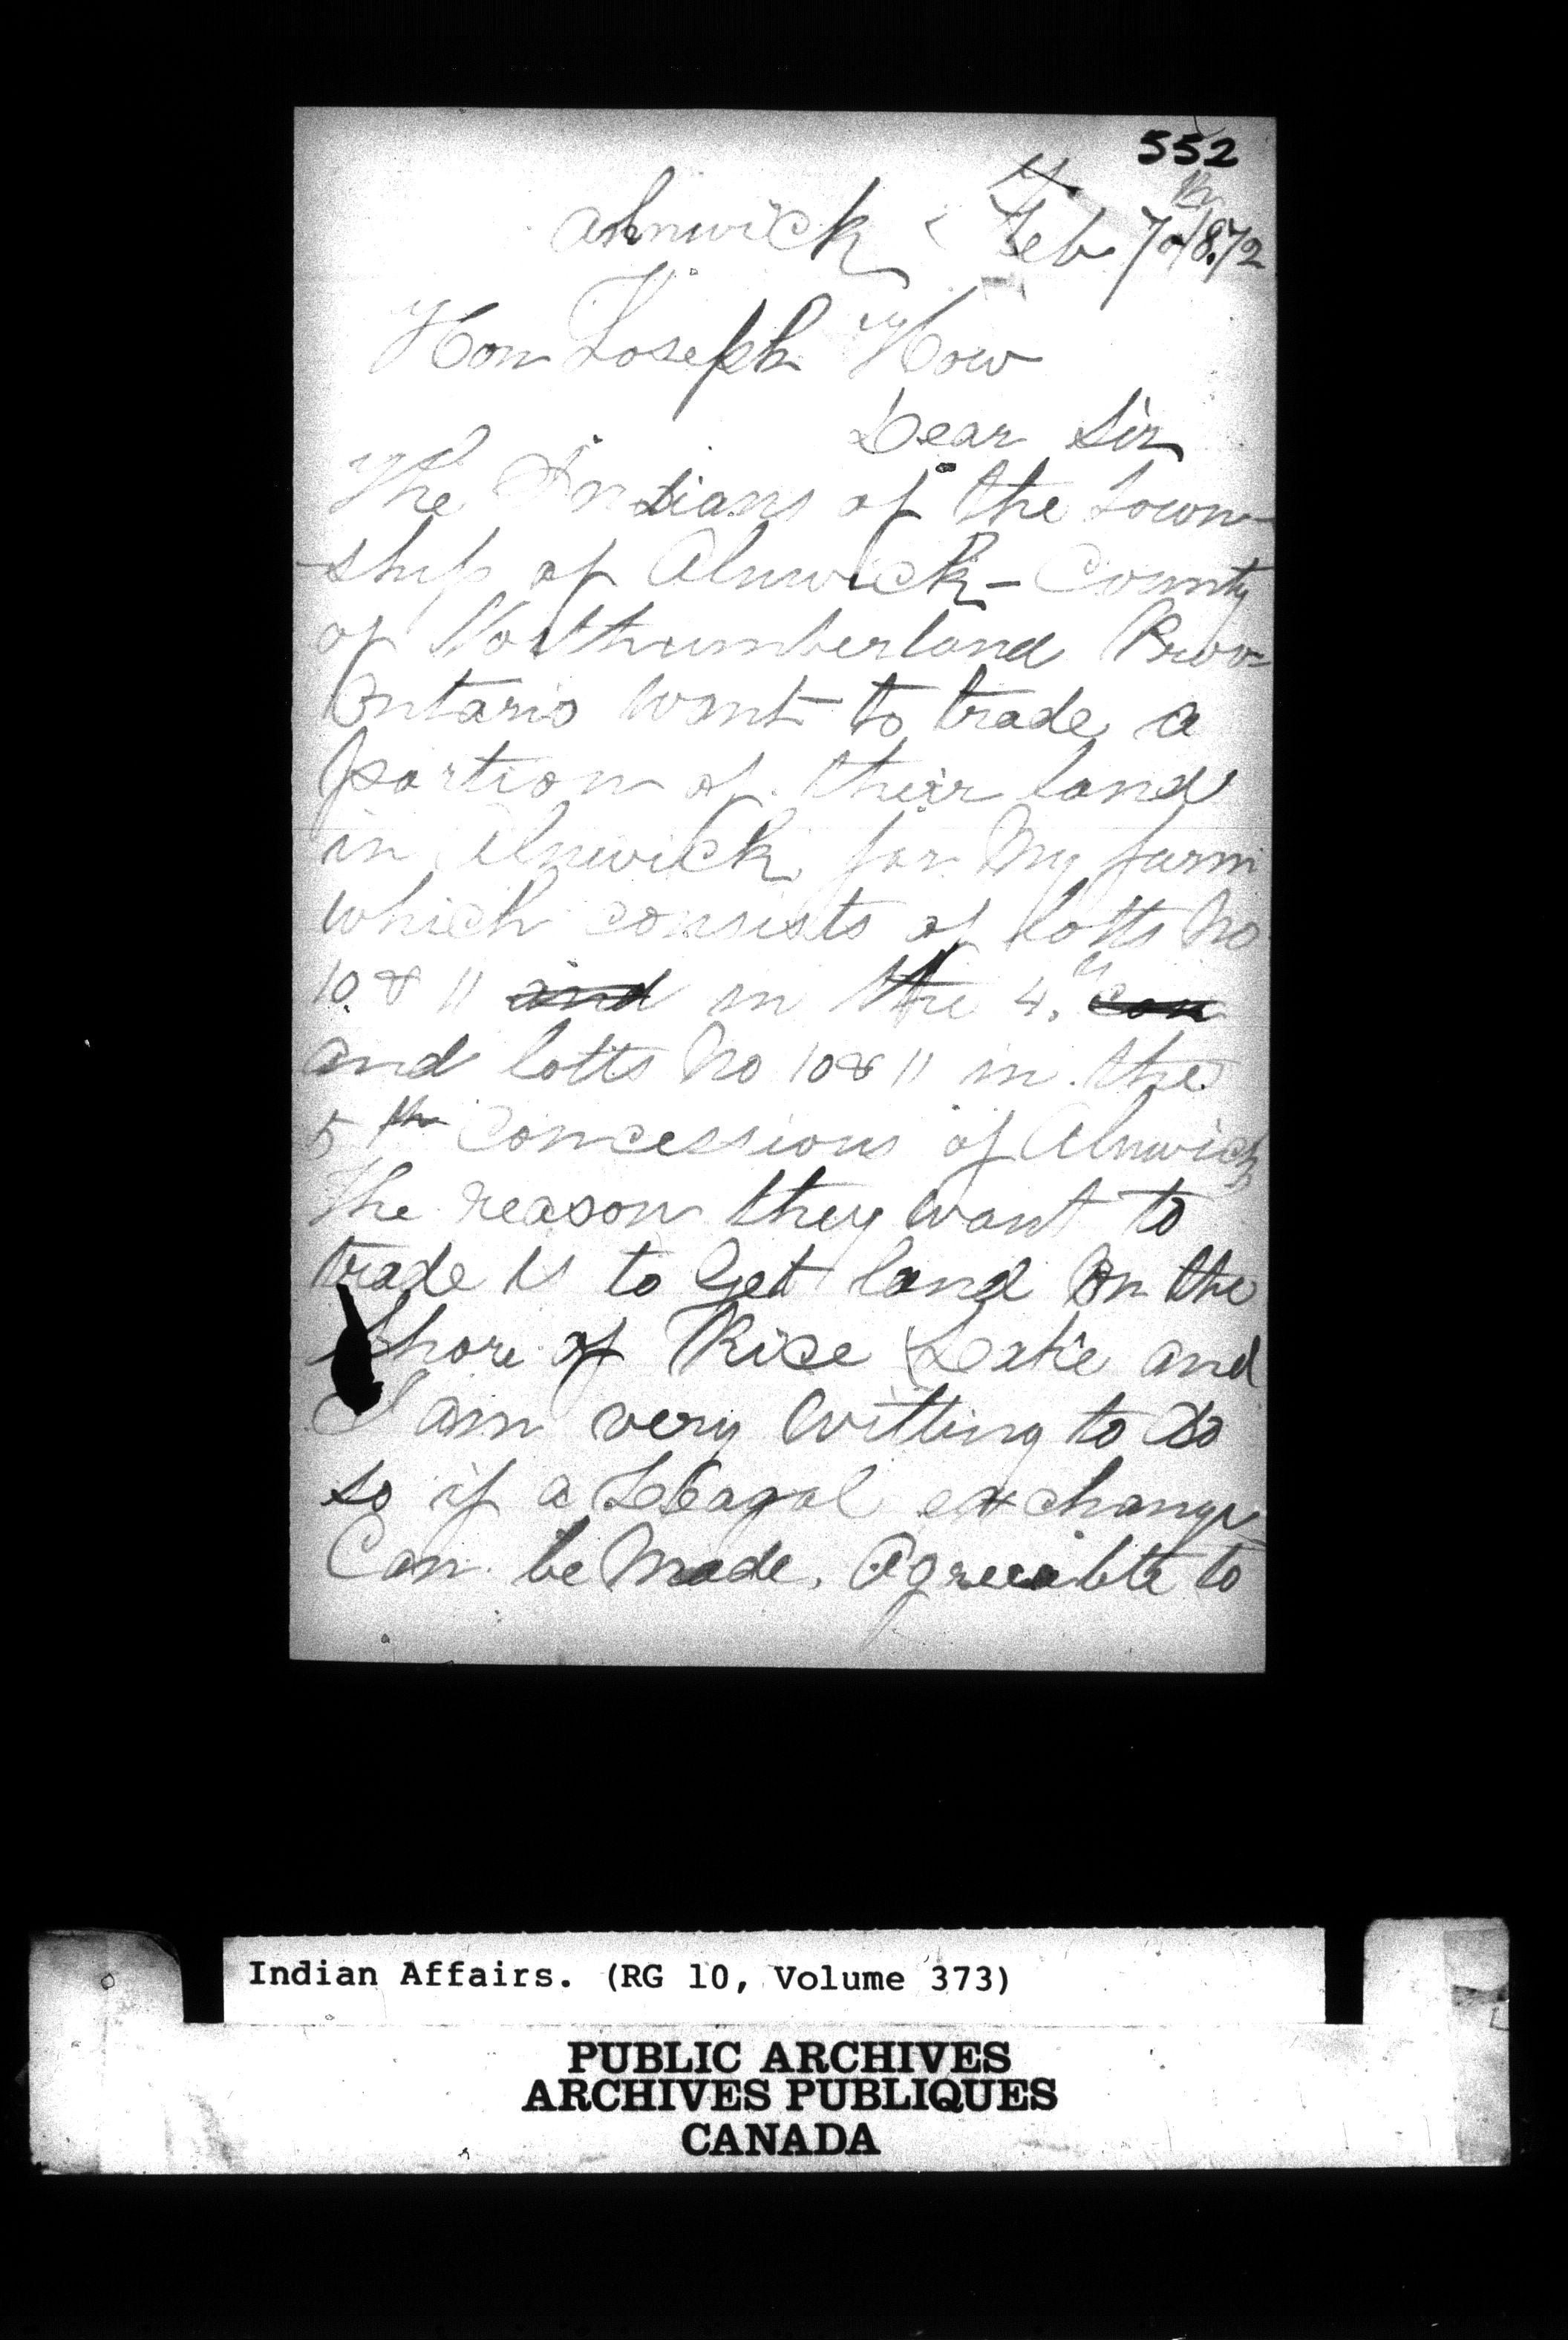 552
Alnwick Feb 7th 1872
Hon Joseph How
Dear Sir
The Indians of the town-
-ship of Alnwick - County
of Northumberland Prov-
Ontario want to trade a
portion of their land
in Alnwick for my farm
which consists of lotts No
10 & 11 and in the 4. con
and lotts No 10 & 11 in the
5th Concessions of Alnwick
The reason they want to
trade is to Get land on the
Shore of Rice Lake and
I am very Willing to do
so if a Leagal exchange
Can be Made. Agreeable to
Indian Affairs. (RG 10, Volume 373)
PUBLIC ARCHIVES
ARCHIVES PUBLIQUES
CANADA